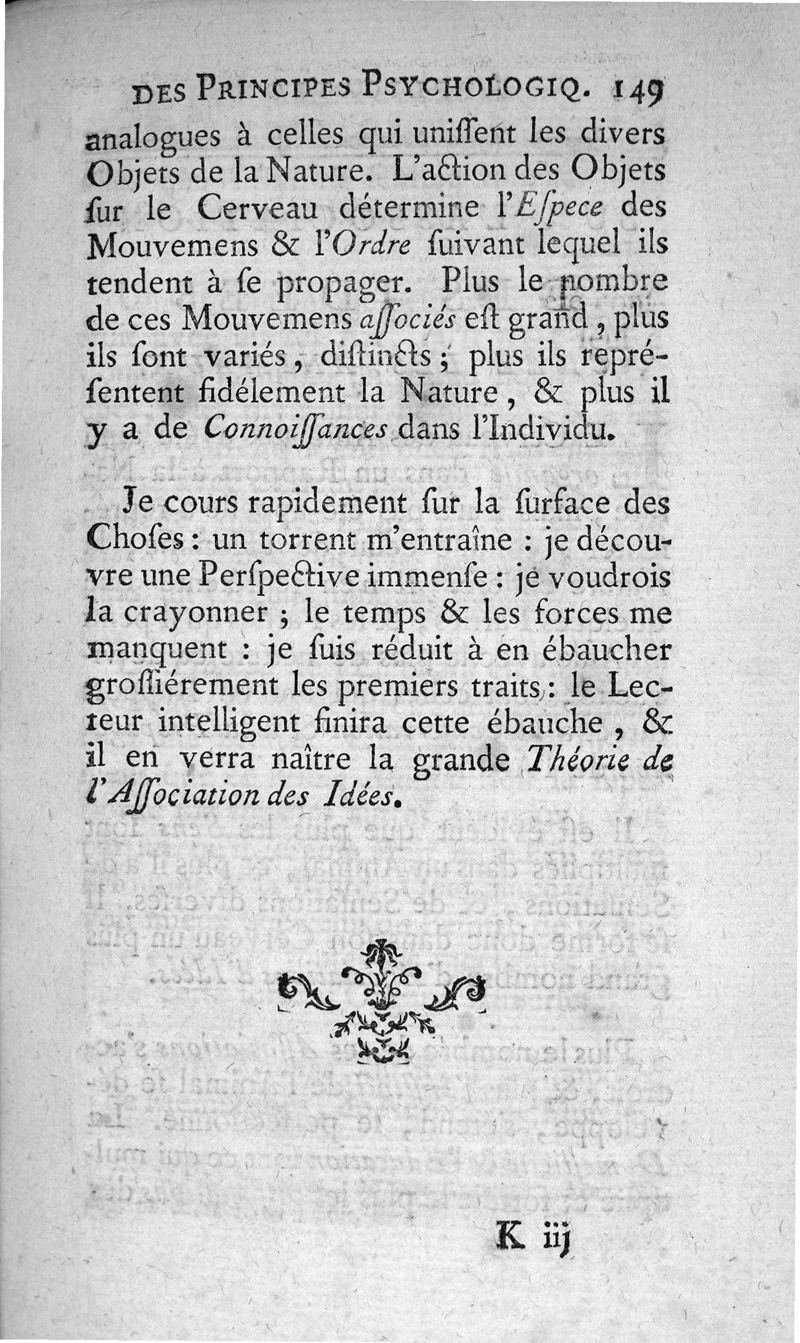 DES PRINCIPES PSYCHOLOGIQ. 149
analogues à celles qui uniſſent les divers
Objets de la Nature. L'action des Objets
ſur le Cerveau détermine l'Eſpece des
Mouvemens & l'Ordre ſuivant lequel ils
tendent à ſe propager. Plus le nombre
de ces Mouvemens aſſociés eſt grand, plus
ils ſont variés, diſtincts; plus ils repré-
ſentent fidélement la Nature, & plus il
y a de Connoiſſances dans l'Individu.
Je cours rapidement ſur la ſurface des
Choſes: un torrent m'entraîne : je décou-
vre une Perſpective immenſe : je voudrois
la crayonner ; le temps & les forces me
manquent : je ſuis réduit à en ébaucher
groſſiérement les premiers traits : le Lec-
teur intelligent finira cette ébauche, &
il en verra naître la grande Théorie de
l'Aſſociation des Idées.
K iij